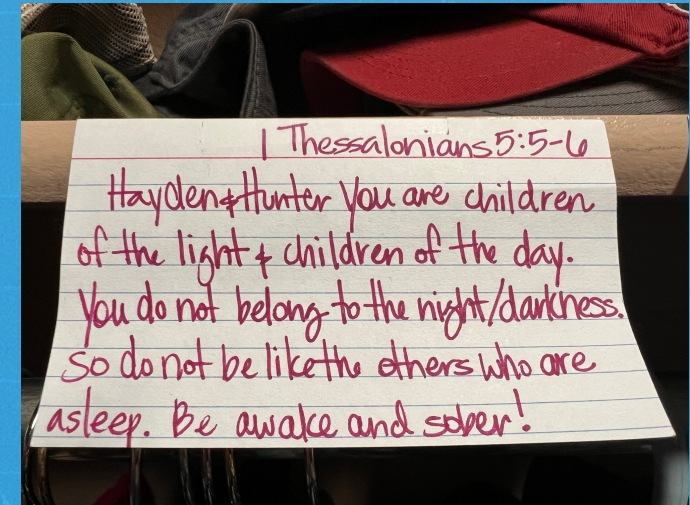 1 Thessalonians 5:5-6
Hayden & Hunter You are children
of the light & children of the day.
You do not belong to the night/darkness.
So do not be like the others who are
asleep. Be awake and sober!